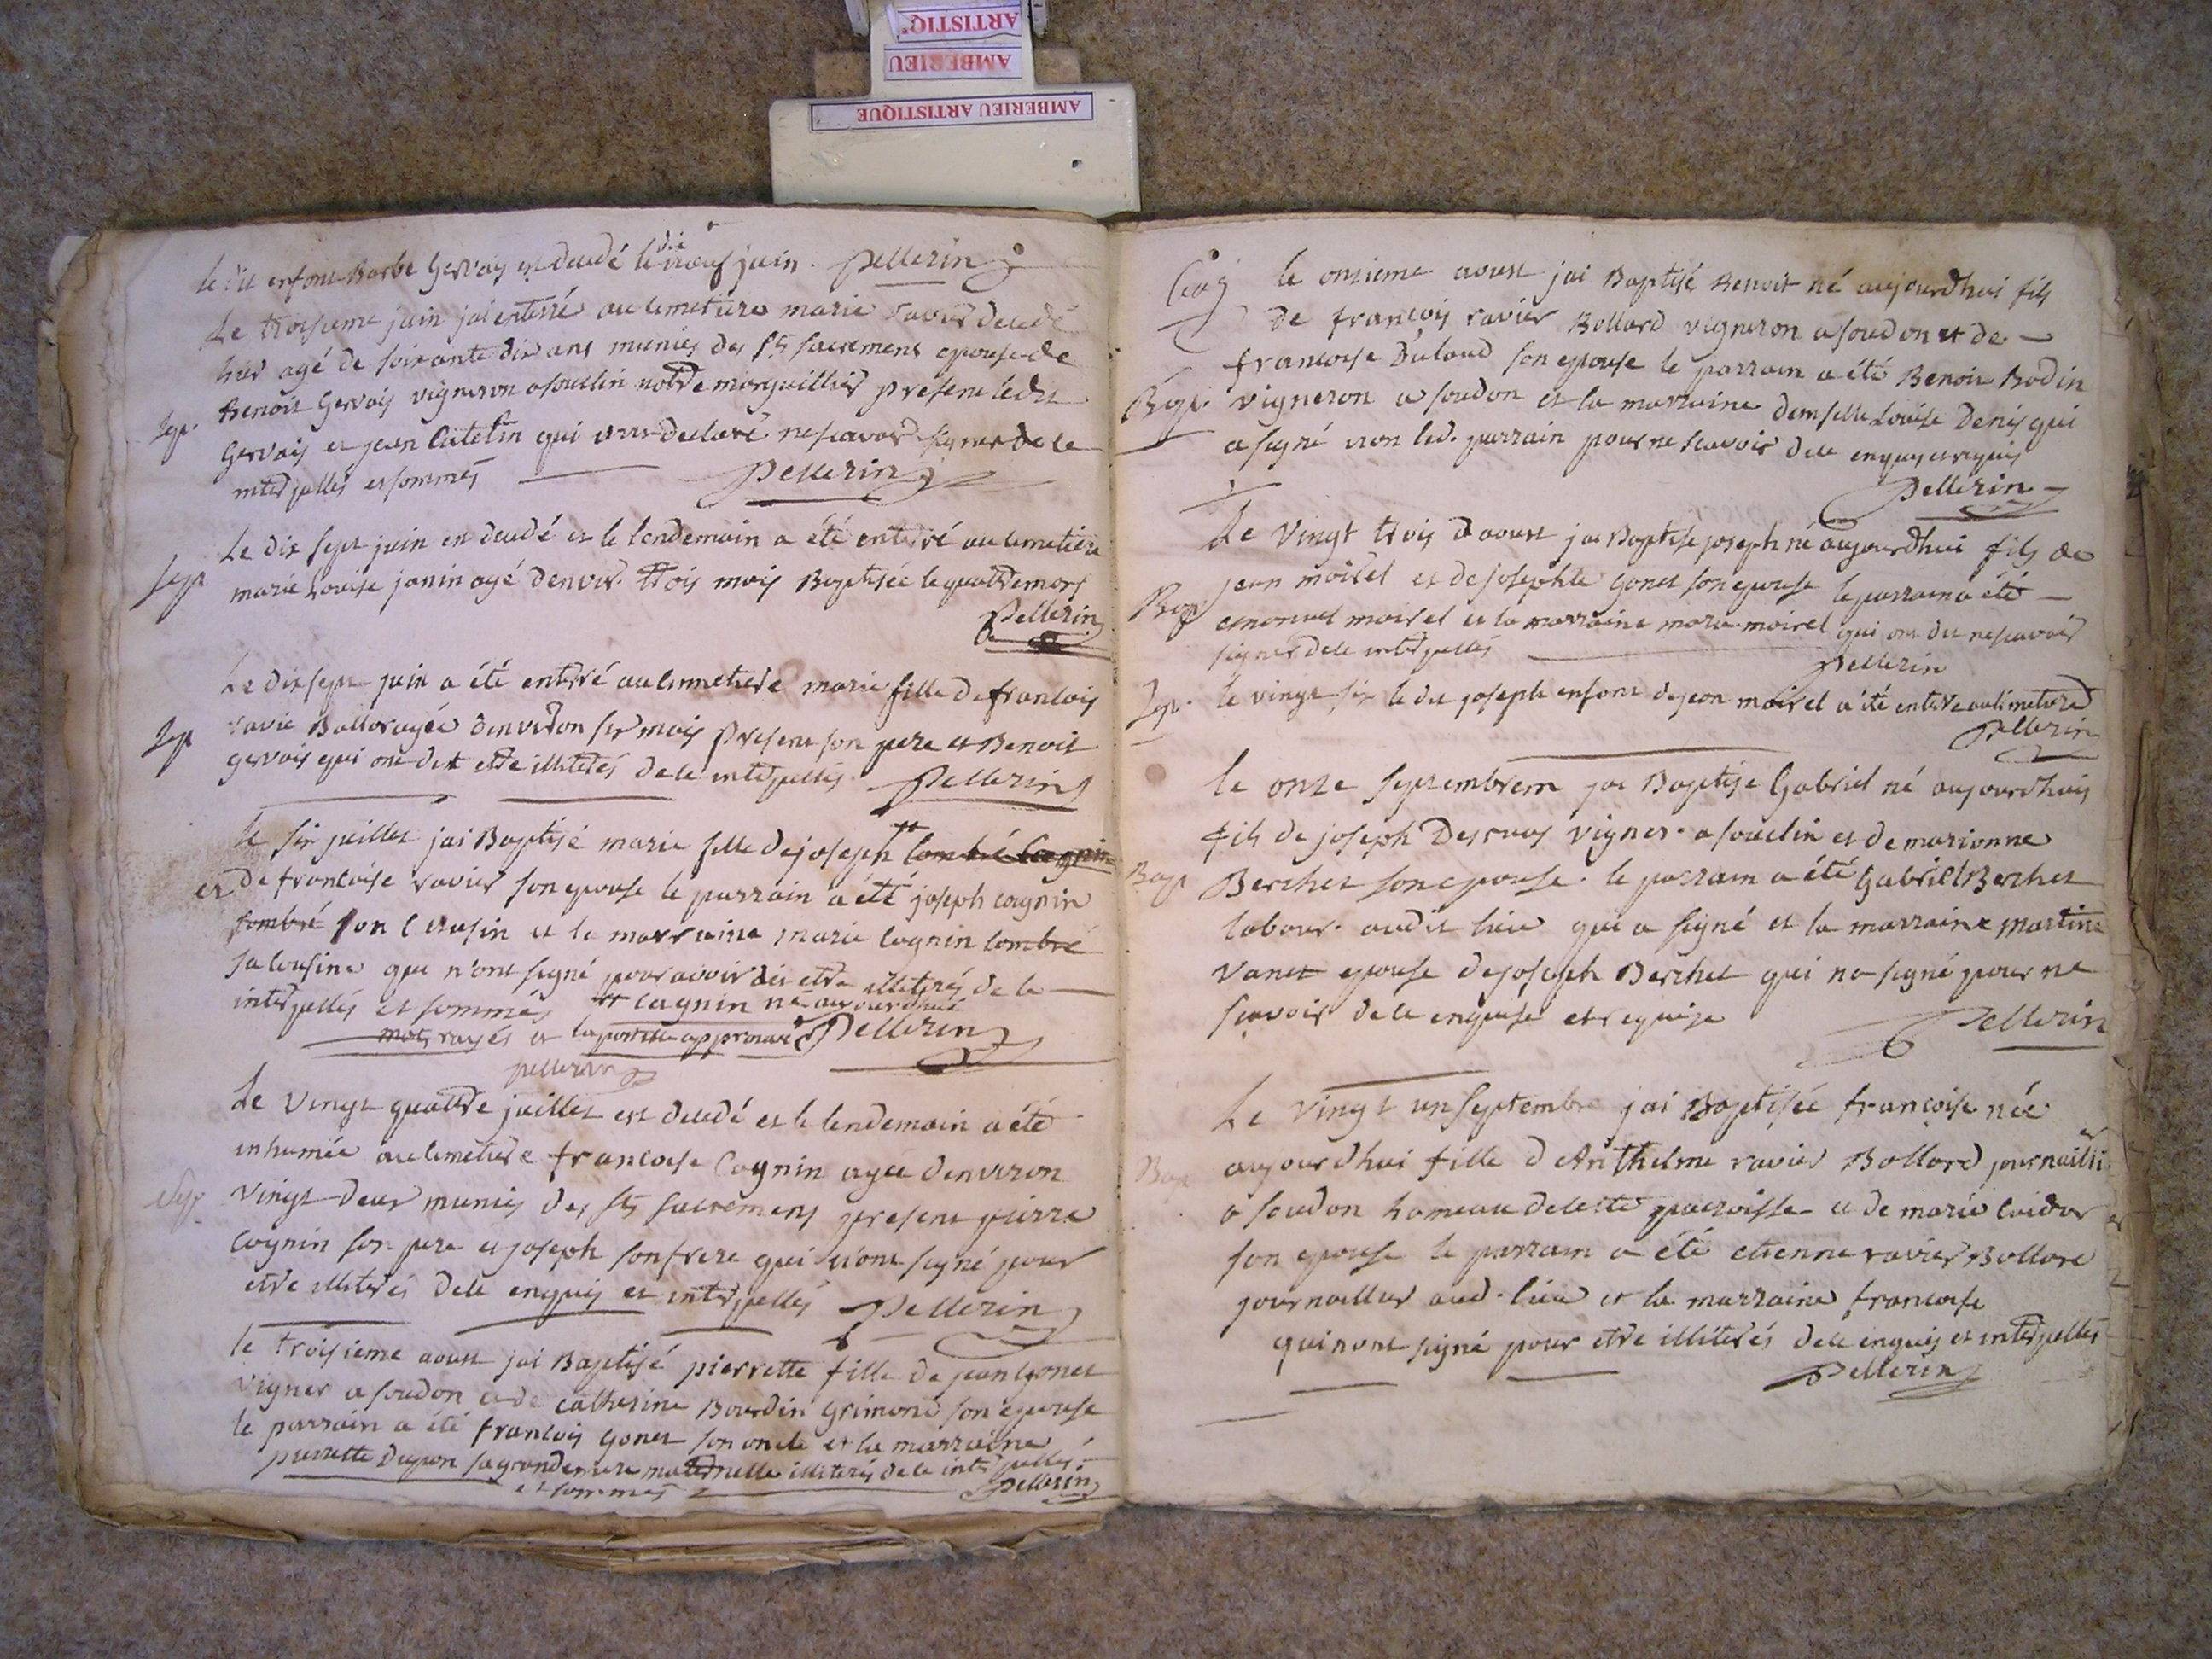 ARTISTIQ
AMBERIEU
AMBERIEU ARTISTIQUE
le dit enfant Barbe Gervais est decedé le dix neuf juin. Pellerin
Le troisieme juin jai enterré au cimetiere marie decedé
hier agé de soixante dix ans munies des sts sacremens epouse de
Benoit Gervais vigneron a souclin notre marguillier present ledit
Sep.
Gervais et jean qui ont declaré ne scavoir signer de ce
interpellés et sommés Pellerin
Le dix sept juin est decedé et le lendemain a été enterré au cimetiere
Sep
marie Louise janin agé denvir. trois mois Baptisée le quattre mars
Pellerin
Le dix sept juin a été enterré au cimmetiere marie fille de francois
Sep
ravie Ballor agée denviron six mois present son pere et Benoit
gervais qui ont dit etre illiterés de ce interpellés. Pellerin
le six juillet jai Baptisé marie fille de joseph Combé Cognin
et de francoise ravier son epouse le parrain a été joseph cognin
Combré son Cousin et la marraine marie Cognin Combré
sa cousine qui n'ont signé pour avoir dit etre illiterés de ce
interpellés et sommés Cagnin né aujourdhui
mots rayés et approuvé Pellerin
pellerin
Le vingt quattre juillet est decedé et le lendemain a été
inhumée au cimetiere francoise Cognin agée denviron
Sep
vingt deux munies des sts sacremens present pierre
Cognin son pere et joseph son frere qui n'ont signé pour
etre illiterés de ce enquis et interpellés Pellerin
le troisieme aoust jai Baptisé pierrette fille de jean gonet
vigner a soudon et de catherine Bourdin Grimond son epouse
le parrain a été francois gonet son oncle et la marraine
pierrette Dupon sa grandemere maternelle illiterés de ce interpellés
et sommés Pellerin
le onsieme aoust jai Baptisé Benoit né aujourdhui fils
de francois ravier Bollard vigneron a soudon et de
francoise son epouse le parrain a été Benoit Bodin
Bap.
vigneron a soudon et la marraine demselle Louise Denis qui
a signé non led. parrain pour ne scavoir de ce enquis et requis
Pellerin
Le vingt trois daoust jai Baptise joseph né aujourdhui fils de
jean moirel et de josephte gonet son epouse le parrain a été
Bap.
emanuel moirel et la marraine marie moirel qui ont dit ne scavoir
signer de ce interpellés
Pellerin
Sep.
le vingt six le dit joseph enfant de jean moirel a été enterre au cimetiere
Pellerin
le onze septembrem jai Baptise Gabriel né aujourdhuis
fils de joseph Descuas vigner. a souclin et de marianne
Bap
Berchet son epouse. le parrain a été Gabriel Berchet
labour. audit lieu qui a signé et la marraine martine
vanet epouse de joseph Berchet qui na signé pour ne
scavoir de ce enquise et requise Pellerin
Le vingt un septembre jai Baptisée francoise née
Bap
aujourdhui fille d Anthelme ravier Bollard journailli er
a soudon hameau de cette parroisse et de marie
son epouse le parrain a été etienne ravier Bollare
journaillier aud. lieu et la marraine francoise
qui n ont signé pour etre illiterés de ce enquis et interpellés
Pellerin